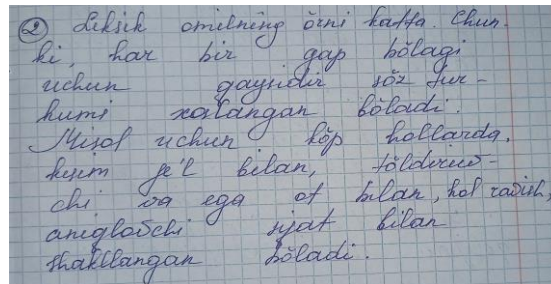 ② Leksik omilning õrni katta. Chun-
ki, har bir gap bõlagi
uchun qaysidir sõz tur-
kumi xoslangan bõladi.
Misol uchun kõp hollarda,
kesim fe'l bilan, tõldiruv-
chi va ega ot bilan, hol ravish,
aniqlovchi sifat bilan
shakllangan bõladi.